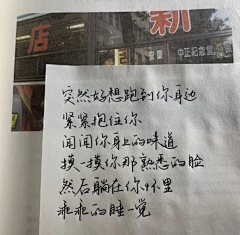 店
新
中正紀念堂
突然好想跑到你身边
紧紧抱住你
闻闻你身上的味道
摸一摸你那熟悉的脸
然后躺在你怀里
乖乖的睡一觉